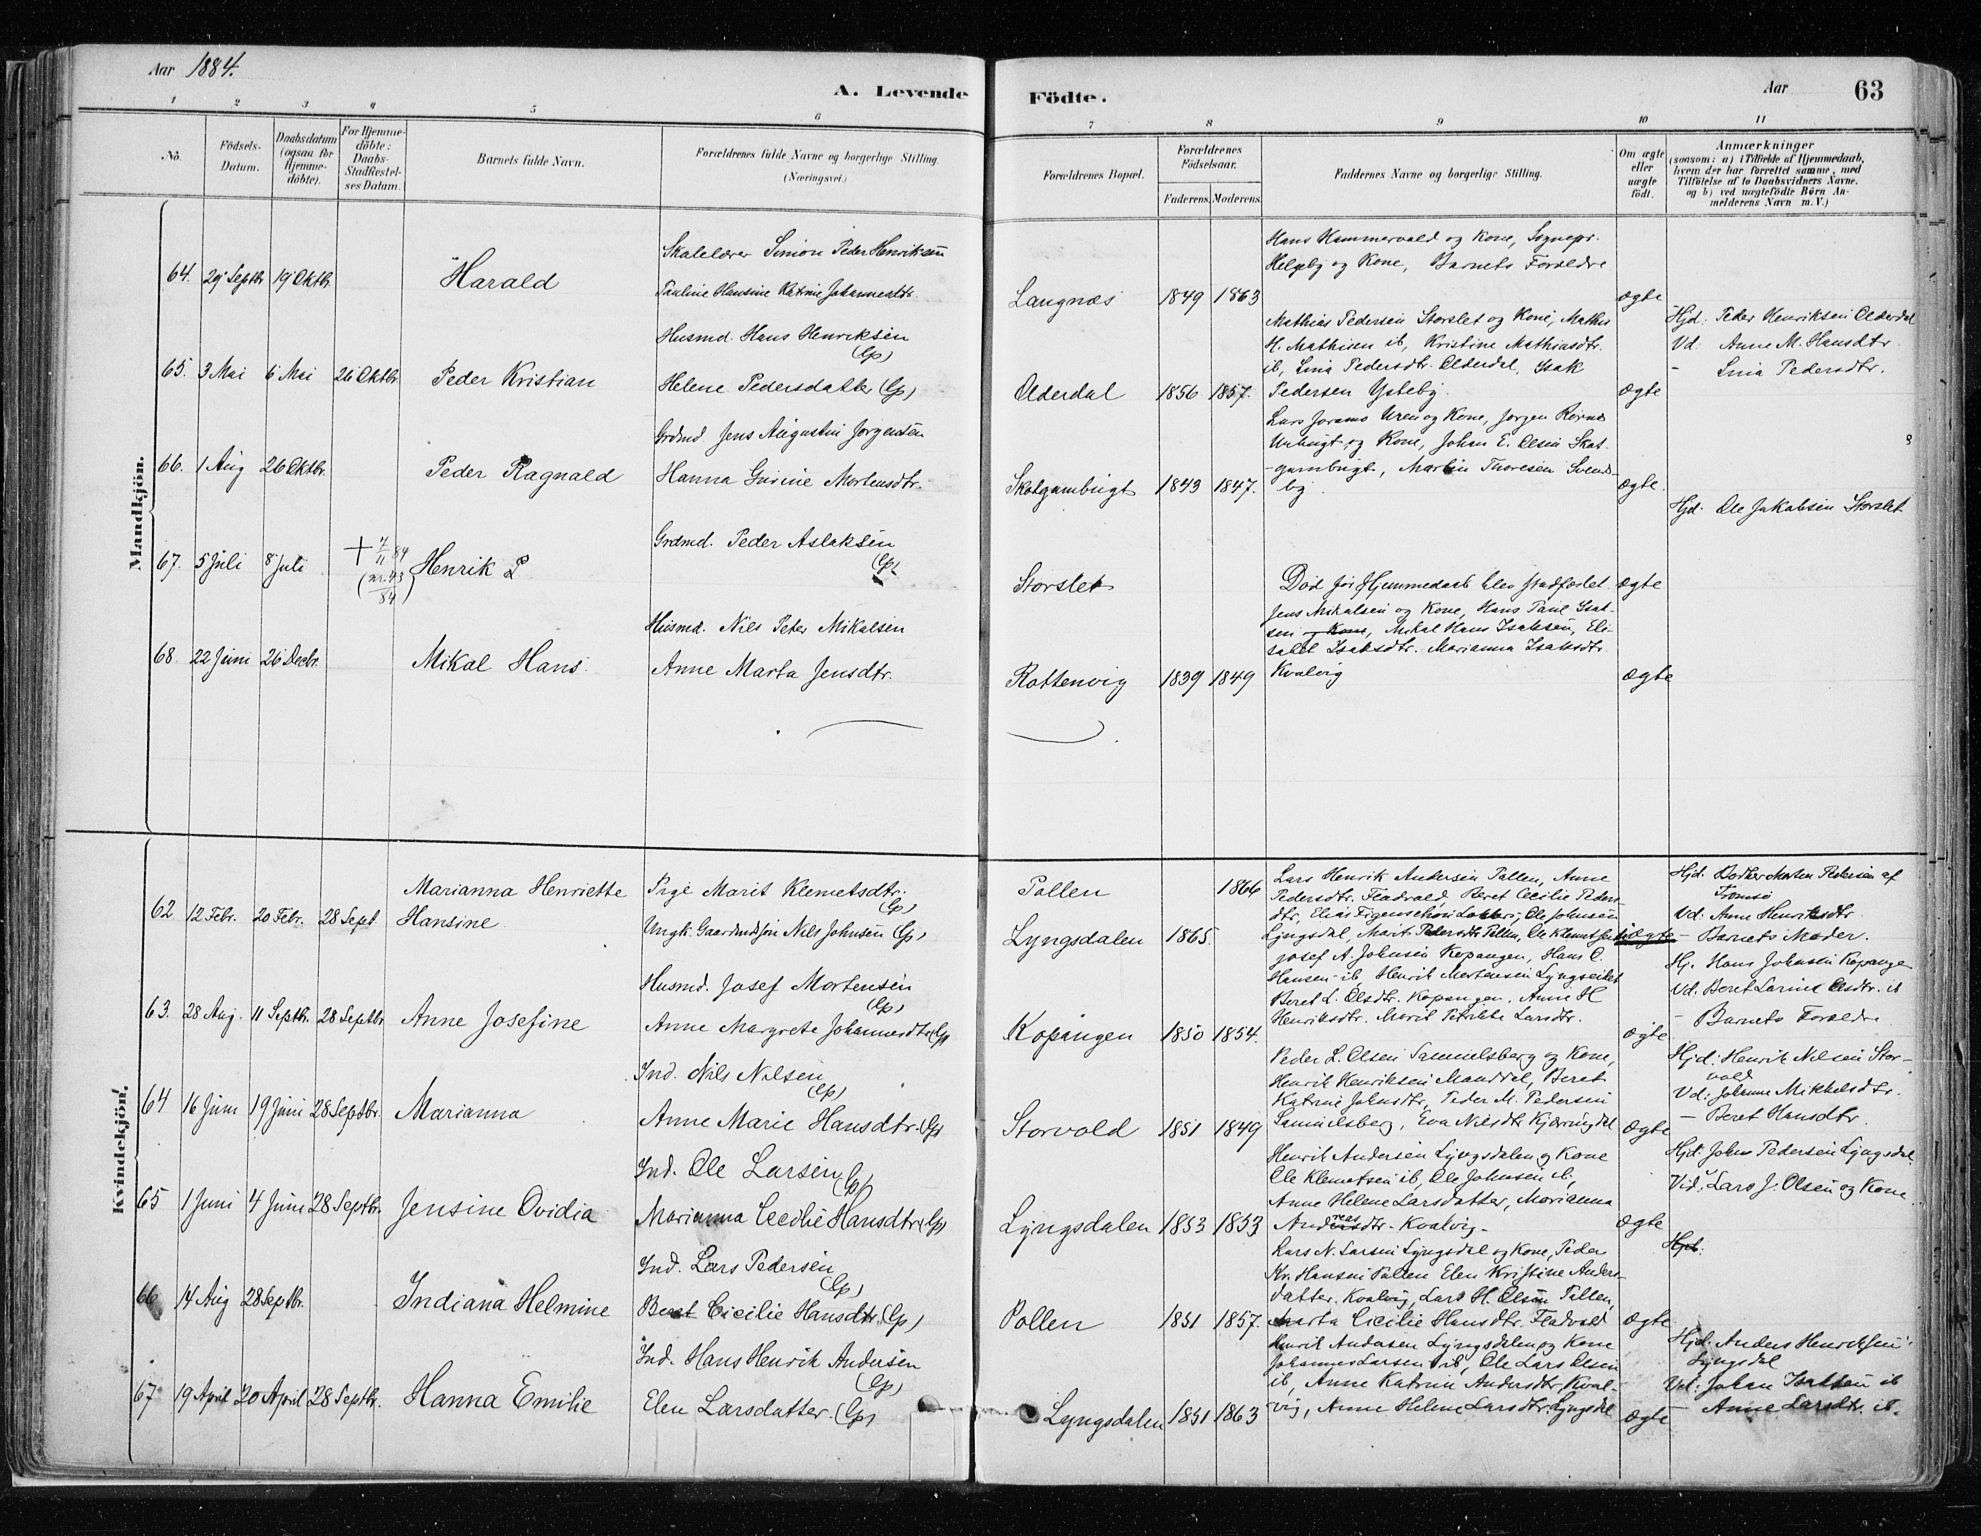 Aar 1884.
A. Levende Födte.
Aar
63
1 2 3 4 5 6 7 8 9 10 11
No.
Födsels-
Datum.
Daabsdatum
(ogsaa for
Hjemme-
döbte).
For Hjemme-
döbte:
Daabs-
Stadfæstel-
ses Datum.
Barnets fulde Navn.
Forældrenes fulde Navne og borgerlige Stilling.
(Næringsvei.)
Forældrenes Bopæl.
Forældrenes
Födselsaar.
Faderens. Moderens.
Faddernes Navne og borgerlige Stilling.
Om ægte
eller
uægte
födt.
Anmærkninger
(saasom: a) i Tilfælde af Hjemmedaab,
hvem der har forrettet samme, med
Tilföielse af to Daabsvidners Navne.
og b) ved uægtefödte Börn An-
melderens Navn m. V.)
Mandkjön.
64. 29 Septbr 19 Oktbr. Harald
Skolelærer Simon Peder Henriksen
Pauline Hansine Katrine Johannesdtr.
Langnæs 1849 1863
Hans Hammervold og Kone, Sognepr.
Helgeby og Kone, Barnets Forældre
ægte
65. 3 Mai 6 Mai 26 Oktbr Peder Kristian
Husmd. Hans Henriksen
(Lp)
Helene Pedersdatter (Lp)
Olderdal 1856 1857.
Mathias Pedersen Storslet og Kone, Mathis
H. Mathisen ib, Kristine Mathiasdtr.
ib, Lina Pedersdtr. Olderdal, Isak
Pedersen Ysteby.
ægte
Hjd: Peder Henriksen Olderdal
Vd: Anne M. Hansdtr
- Lina Pedersdtr.
66. 1 Aug 26 Oktbr. Peder Ragnald
Grdmd Jens Augustin Jørgensen
Hanna Gurine Mortensdtr.
Skotgambugt 1843 1847.
Lars Uren og Kone, Jørgen
og Kone, Johan E. Olsen Skot-
gambugt, Martin Thoresen Svends-
by.
ægte.
67. 5 Juli 8 Juli + 4/11 84
(nr. 43
84)
Henrik P
Grdmd. Peder Aslaksen
(Lp)
Storslet
Død før Hjemmedaab blev stadfæstet
ægte
Hjd: Ole Jakobsen Storslet
68 22 Juni 26 Decbr. Mikal Hans.
Husmd. Nils Peter Mikalsen
Anne Marta Jensdtr.
Rottenvig 1839 1849
Jens Mikalsen og Kone, Hans Paul Isak-
sen og Kone, Mikal Hans Isaksen, Eli-
sabet Isaksdtr. Marianna Isaksdtr.
Kvalvig
ægte
Kvindekjön.
62 12 Febr. 20 Febr. 28 Sept
Marianna Henriette
Hansine
Pige Marit Klemetsdtr.
(Lp)
Ungk. Gaardmdsøn Nils Johnsen (Lp)
Pollen 1866
Lyngsdalen 1865.
Lars Henrik Andersen Pollen, Anne
Pedersdtr. Fladvold, Beret Cecilie Peders-
dtr, Elias Ole Johnsen
Lyngsdal, Marit Pedersdtr. Pollen, Ole Klemetsen ib
uægte
Hjd. Doktor Morten Pedersen af
Tromsø
Vd: Anne Henriksdtr.
- Barnets Moder.
63. 28 Aug. 11 Septbr. 28 Septbr Anne Josefine
Husmd. Josef Mortensen
(Lp)
Anne Margrete Johannesdtr (Lp)
Kopangen 1850 1854.
Josef A. Johnsen Kopangen, Hans C.
Hansen ib, Henrik Mortensen Lyngseidet
Beret L. Olsdtr. Kopangen, Anne H
Henriksdtr. Marit Petrikke Larsdtr.
ægte
Hj. Hans Johnsen Kopange
Vd: Beret Larine Olsdtr. ib
- Barnets Forældre
64 16 Juni 19 Juni 28 Septbr. Marianna
Ind. Nils Nilsen
(Lp)
Anne Marie Hansdtr. (Lp)
Storvold 1851 1849
Peder L. Olsen Samuelsberg og Kone,
Henrik Henriksen Manddal, Beret
Katrine Johnsdtr, Peder M. Pedersen
Samuelsberg, Eva Nilsdtr Kjærringdal
ægte
Hjd: Henrik Nilsen Stor-
vold
Vd: Johanne Mikkelsdtr.
- Beret Hansdtr
65 1 Juni 4 Juni 28 Septbr. Jensine Ovidia
Ind. Ole Larsen
(Lp)
Marianna Cecilie Hansdtr (Lp)
Lyngsdalen 1853 1853
Henrik Andersen Lyngsdalen og Kone
Ole Klemetsen ib, Ole Johnsen ib,
Anne Helene Larsdatter, Marianna
Andreasdtr. Kvalvig.
ægte
Hjd: Johs Pedersen Lyngsdal.
Vid: Lars J. Olsen og Kone
66 14 Aug 28 Septbr. Indiana Helmine
Ind. Lars Pedersen
(Lp)
Beret Cicilie Hansdtr. (Lp)
Pollen 1851 1857.
Lars N. Larsen Lyngsdal og Kone, Peder
Kr. Hansen Pollen Elen Kristine Anders-
datter Kvalvig, Lars H. Olsen Pollen,
Marta Cicilie Hansdtr. Fladvold
ægte
Hjd:
67 19 April 20 April 28 Septbr. Hanna Emilie
Ind. Hans Henrik Andersen
(Lp)
Elen Larsdatter. (Lp)
Lyngsdalen 1851 1863
Henrik Andersen Lyngsdalen og Kone
Johannes Larsen ib, Ole Lars Olsen
ib, Anne Katrine Andersdtr. Kval-
vig, Anne Helene Larsdtr. Lyngsdal
ægte
Hjd: Anders Henriksen
Lyngsdal
Vd: Johan Isaksen ib
- Anne Larsdtr ib.